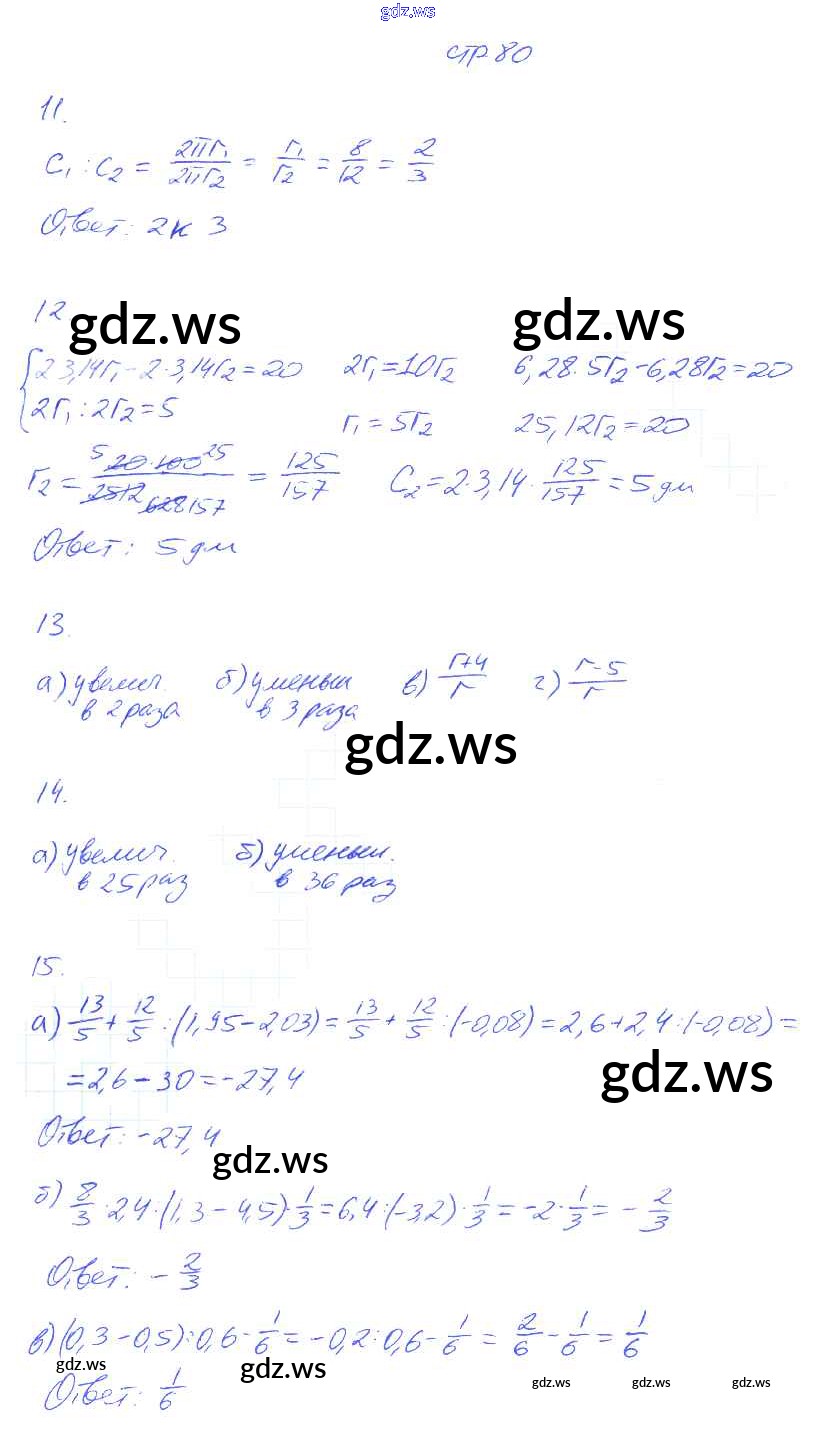 gdz.ws
стр 80
11.
C₁ : C₂ = 2πr₁/2πr₂ = r₁/r₂ = 8/12 = 2/3
Ответ: 2 к 3
12
gdz.ws gdz.ws
{2·3,14r₁ - 2·3,14r₂ = 20 2r₁ = 10r₂ 6,28·5r₂ - 6,28r₂ = 20
2r₁ : 2r₂ = 5 r₁ = 5r₂ 25,12r₂ = 20
r₂ = 5 20·100 25/2512 628 157 = 125/157 C₂ = 2·3,14·125/157 = 5 дм
Ответ: 5 дм
13.
а) увелич. в 2 раза б) уменьш в 3 раза в) r+4/r г) r-5/r
gdz.ws
14.
а) увелич. в 25 раз б) уменьш. в 36 раз
15.
а) 13/5 + 12/5 : (1,95 - 2,03) = 13/5 + 12/5 : (-0,08) = 2,6 + 2,4 : (-0,08) =
= 2,6 - 30 = -27,4
gdz.ws
Ответ: -27,4
gdz.ws
б) 8/3 · 2,4 : (1,3 - 4,5) · 1/3 = 6,4 : (-3,2) · 1/3 = -2 · 1/3 = -2/3
Ответ: -2/3
в) (0,3 - 0,5) : 0,6 - 1/6 = -0,2 : 0,6 - 1/6 = 2/6 - 1/6 = 1/6
gdz.ws gdz.ws
Ответ: 1/6
gdz.ws gdz.ws gdz.ws